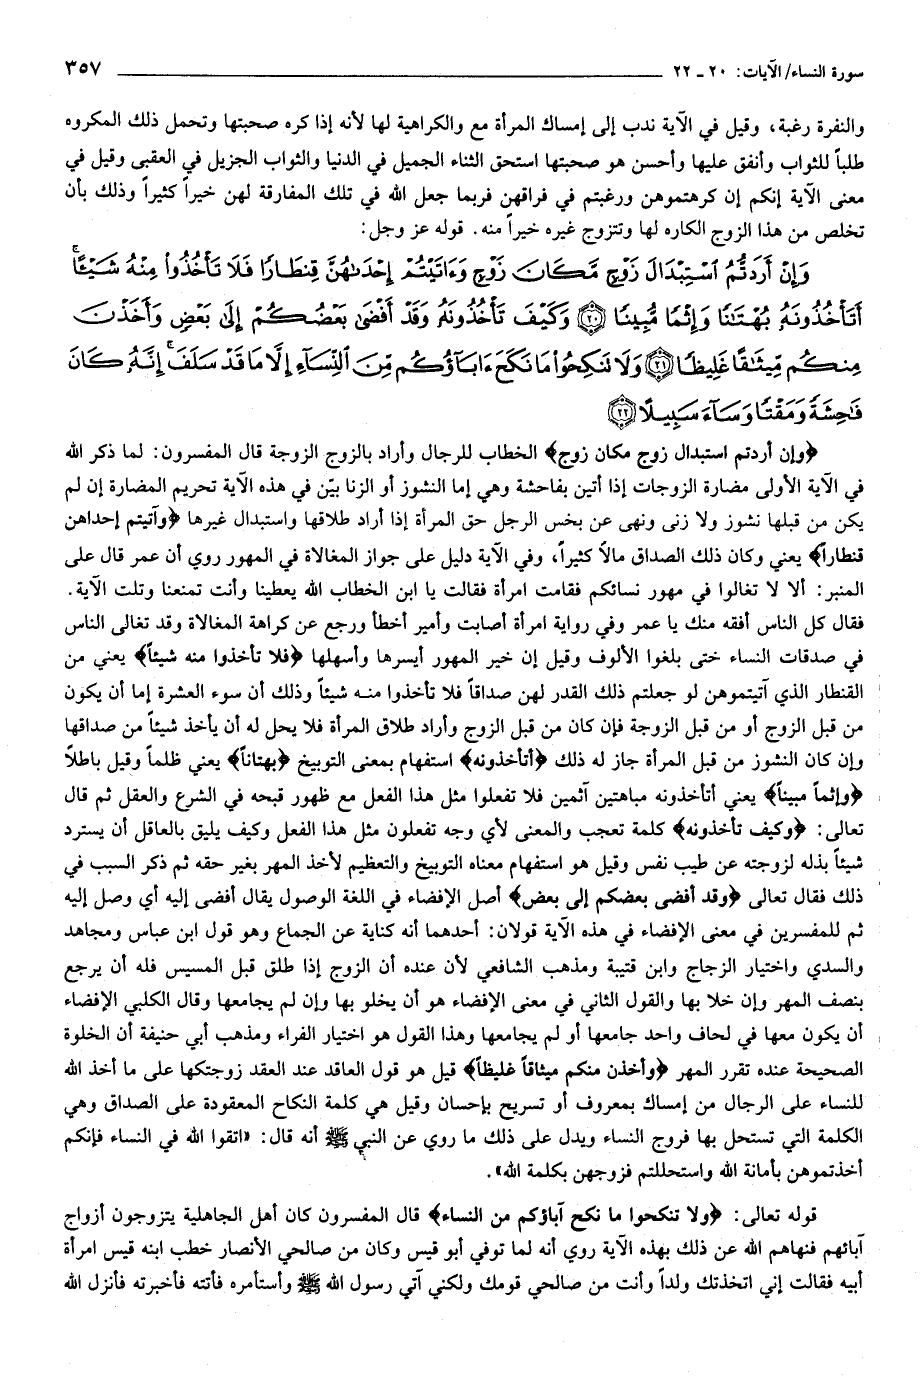 سورة النساء/ الآيات: ٢٠ ـ ٢٢ ٣٥٧
والنفرة رغبة، وقيل في الآية ندب إلى إمساك المرأة مع والكراهية لها لأنه إذا كره صحبتها وتحمل ذلك المكروه
طلباً للثواب وأنفق عليها وأحسن هو صحبتها استحق الثناء الجميل في الدنيا والثواب الجزيل في العقبى وقيل في
معنى الآية إنكم إن كرهتموهن ورغبتم في فراقهن فربما جعل الله في تلك المفارقة لهن خيراً كثيراً وذلك بأن
تخلص من هذا الزوج الكاره لها وتتزوج غيره خيراً منه. قوله عز وجل:
وَإِنْ أَرَدتُّمُ ٱسْتِبْدَالَ زَوْجٍ مَّكَانَ زَوْجٍ وَءَاتَيْتُمْ إِحْدَىٰهُنَّ قِنطَارًا فَلَا تَأْخُذُوا۟ مِنْهُ شَيْـًٔا ۚ
أَتَأْخُذُونَهُۥ بُهْتَـٰنًا وَإِثْمًا مُّبِينًا ﴿٢٠﴾ وَكَيْفَ تَأْخُذُونَهُۥ وَقَدْ أَفْضَىٰ بَعْضُكُمْ إِلَىٰ بَعْضٍ وَأَخَذْنَ
مِنكُم مِّيثَـٰقًا غَلِيظًا ﴿٢١﴾ وَلَا تَنكِحُوا۟ مَا نَكَحَ ءَابَآؤُكُم مِّنَ ٱلنِّسَآءِ إِلَّا مَا قَدْ سَلَفَ ۚ إِنَّهُۥ كَانَ
فَـٰحِشَةً وَمَقْتًا وَسَآءَ سَبِيلًا ﴿٢٢﴾
﴿وإن أردتم استبدال زوج مكان زوج﴾ الخطاب للرجال وأراد بالزوج الزوجة قال المفسرون: لما ذكر الله
في الآية الأولى مضارة الزوجات إذا أتين بفاحشة وهي إما النشوز أو الزنا بيّن في هذه الآية تحريم المضارة إن لم
يكن من قبلها نشوز ولا زنى ونهى عن بخس الرجل حق المرأة إذا أراد طلاقها واستبدال غيرها ﴿وآتيتم إحداهن
قنطاراً﴾ يعني وكان ذلك الصداق مالاً كثيراً، وفي الآية دليل على جواز المغالاة في المهور روي أن عمر قال على
المنبر: ألا لا تغالوا في مهور نسائكم فقامت امرأة فقالت يا ابن الخطاب الله يعطينا وأنت تمنعنا وتلت الآية.
فقال كل الناس أفقه منك يا عمر وفي رواية امرأة أصابت وأمير أخطأ ورجع عن كراهة المغالاة وقد تغالى الناس
في صدقات النساء حتى بلغوا الألوف وقيل إن خير المهور أيسرها وأسهلها ﴿فلا تأخذوا منه شيئاً﴾ يعني من
القنطار الذي آتيتموهن لو جعلتم ذلك القدر لهن صداقاً فلا تأخذوا منه شيئاً وذلك أن سوء العشرة إما أن يكون
من قبل الزوج أو من قبل الزوجة فإن كان من قبل الزوج وأراد طلاق المرأة فلا يحل له أن يأخذ شيئاً من صداقها
وإن كان النشوز من قبل المرأة جاز له ذلك ﴿أتأخذونه﴾ استفهام بمعنى التوبيخ ﴿بهتاناً﴾ يعني ظلماً وقيل باطلاً
﴿وإثماً مبيناً﴾ يعني أتأخذونه مباهتين آثمين فلا تفعلوا مثل هذا الفعل مع ظهور قبحه في الشرع والعقل ثم قال
تعالى: ﴿وكيف تأخذونه﴾ كلمة تعجب والمعنى لأي وجه تفعلون مثل هذا الفعل وكيف يليق بالعاقل أن يسترد
شيئاً بذله لزوجته عن طيب نفس وقيل هو استفهام معناه التوبيخ والتعظيم لأخذ المهر بغير حقه ثم ذكر السبب في
ذلك فقال تعالى ﴿وقد أفضى بعضكم إلى بعض﴾ أصل الإفضاء في اللغة الوصول يقال أفضى إليه أي وصل إليه
ثم للمفسرين في معنى الإفضاء في هذه الآية قولان: أحدهما أنه كناية عن الجماع وهو قول ابن عباس ومجاهد
والسدي واختيار الزجاج وابن قتيبة ومذهب الشافعي لأن عنده أن الزوج إذا طلق قبل المسيس فله أن يرجع
بنصف المهر وإن خلا بها والقول الثاني في معنى الإفضاء هو أن يخلو بها وإن لم يجامعها وقال الكلبي الإفضاء
أن يكون معها في لحاف واحد جامعها أو لم يجامعها وهذا القول هو اختيار الفراء ومذهب أبي حنيفة أن الخلوة
الصحيحة عنده تقرر المهر ﴿وأخذن منكم ميثاقاً غليظاً﴾ قيل هو قول العاقد عند العقد زوجتكها على ما أخذ الله
للنساء على الرجال من إمساك بمعروف أو تسريح بإحسان وقيل هي كلمة النكاح المعقودة على الصداق وهي
الكلمة التي تستحل بها فروج النساء ويدل على ذلك ما روي عن النبي ﷺ أنه قال: «اتقوا الله في النساء فإنكم
أخذتموهن بأمانة الله واستحللتم فزوجهن بكلمة الله».
قوله تعالى: ﴿ولا تنكحوا ما نكح آباؤكم من النساء﴾ قال المفسرون كان أهل الجاهلية يتزوجون أزواج
آبائهم فنهاهم الله عن ذلك بهذه الآية روي أنه لما توفي أبو قيس وكان من صالحي الأنصار خطب ابنه قيس امرأة
أبيه فقالت إني اتخذتك ولداً وأنت من صالحي قومك ولكني آتي رسول الله ﷺ وأستأمره فأتته فأخبرته فأنزل الله